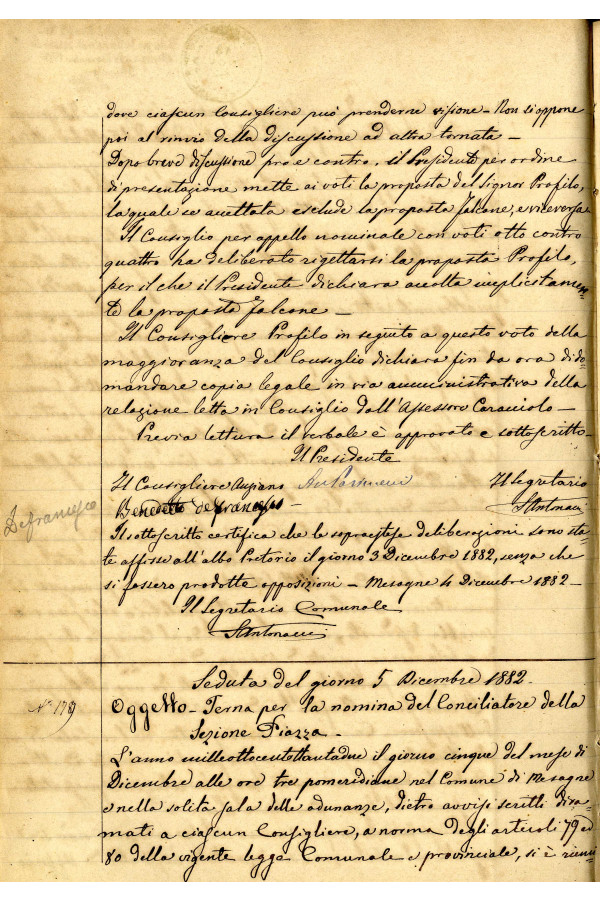 dove ciascun Consigliere può prenderne visione – Non si oppone
poi al rinvio della discussione ad altra tornata –
Dopo breve discussione pro e contro, il Presidente per ordine
di presentazione mette ai voti la proposta del Signor Profilo,
la quale se accettata esclude la proposta Falcone, e viceversa
Il Consiglio per appello nominale con voti otto contro
quattro ha deliberato rigettarsi la proposta Profilo,
per il che il Presidente dichiara accolta implicitamen=
te la proposta Falcone –
Il Consigliere Profilo in seguito a questo voto della
maggioranza del Consiglio dichiara fin da ora di do=
mandare copia legale in via amministrativa della
relazione letta in Consiglio dall'Assessore Caraviolo –
Previa lettura il verbale è approvato e sottoscritto –
Il Presidente
Il Consigliere Anziano
Il Segretario
Benedetto de francesco –
SAntonucci
Defrancesco
Il sottoscritto certifica che le sopraestese deliberazioni sono sta=
te affisse all'albo Pretorio il giorno 3 Dicembre 1882, senza che
si fossero prodotte opposizioni – Mesagne 4 Dicembre 1882 –
Il Segretario Comunale
SAntonucci
Seduta del giorno 5 Dicembre 1882 –
N.° 179
Oggetto – Terna per la nomina del Conciliatore della
Sezione Piazza –
L'anno milleottocentottantadue il giorno cinque del mese di
Dicembre alle ore tre pomeridiane nel Comune di Mesagne
e nella solita sala delle adunanze, dietro avvisi scritti dira=
mati a ciascun Consigliere, a norma degli articoli 79 ed
80 della vigente legge Comunale e provinciale, si è riuni